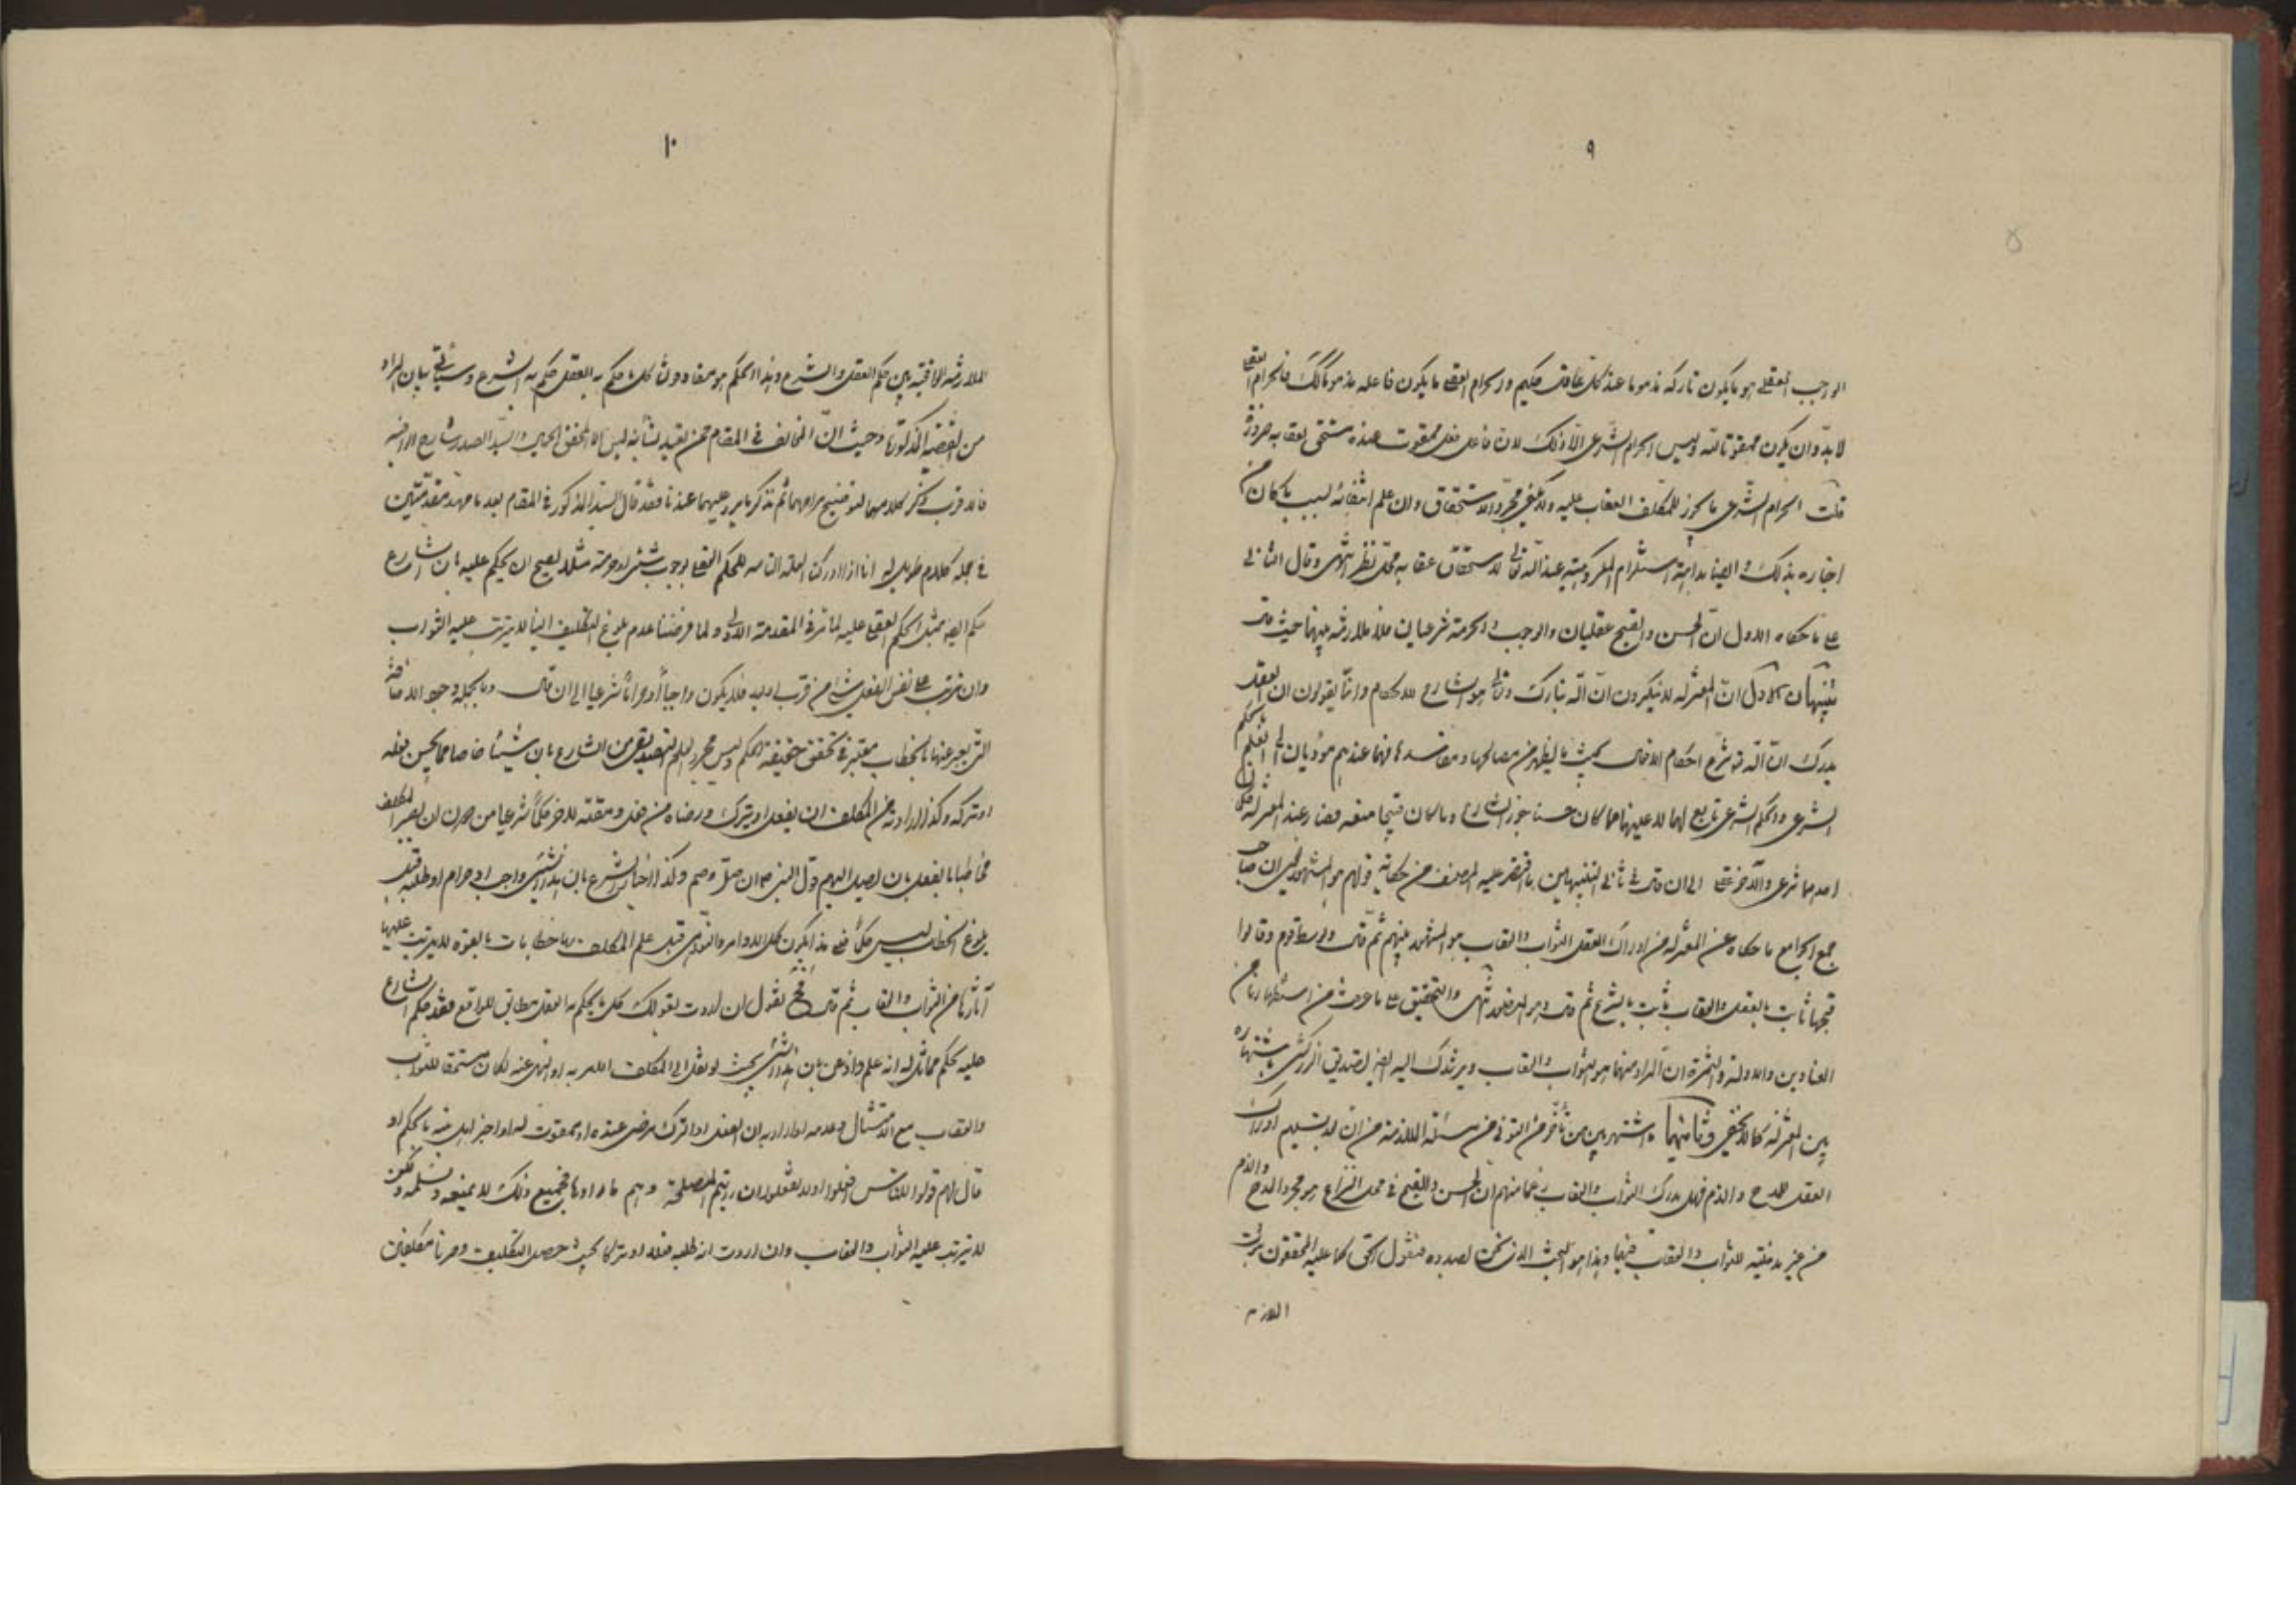 ٩
الواجب العقلي هو ما يكون تاركه مذموما عند كل عاقل حكيم والحرام العقلي ما يكون فاعله مذموما كك فالحرام العقلي
لا بد وان يكون ممقوتا لله وليس الحرام الشرعي الا ذلك لان فاعل فعل ممقوت عنده مستحق لعقابه ضرورة
قلت الحرام الشرعي ما يجوز للمكلف العقاب عليه ولا يكفي مجرد الاستحقاق وان علم انتفائه لسبب ما كان من
اخباره بذلك وايضا بداهة استلزام المكروهية عند الله تعالى لاستحقاق عقابه محل نظر انتهى وقال الثاني
على ما حكاه الاول ان الحسن والقبح عقليان والوجوب والحرمة شرعيان فلا ملازمة بينهما حيث قال
تنبيهان الاول ان المعتزلة لا ينكرون ان الله تبارك وتعالى هو الشارع للاحكام وانما يقولون ان العقل
يدرك ان الله تع شرع احكام الافعال بحسب ما يظهر من مصالحها ومفاسدها فهما عندهم مؤديان الى العلم بالحكم
الشرعي والحكم الشرعي تابع لهما لا عينهما فما كان حسنا جوزه الشارع وما كان قبيحا منعه فصار عند المعتزلة حكمان
احدهما شرعي والآخر عقلي الى ان قال في ثاني التنبيهين ما اقتصر عليه المصنف من حكاية قولهم هو المشهور يعني ان صاحب
جمع الجوامع ما حكاه عن المعتزلة من ادراك العقل الثواب والعقاب هو المشهور بينهم ثم قال وتوسط قوم وقالوا
قبحها ثابت بالعقل والعقاب ثابت بالشرع ثم قال وهو المنصور انتهى والتحقيق على ما عرفت من استظهارنا من
العناوين والادلة والثمرة ان المراد منهما هو الثواب والعقاب ويرشدك اليه ايضا تصديق الزركشي باشتهاره
بين المعتزلة كما لا يخفى وثانيهما ما اشتهر بين من تأخر من التوني في مسئلة الملازمة من ان بعد تسليم ادراك
العقل للمدح والذم فهل يدرك الثواب والعقاب زعما منهم ان الحسن والقبح في محل النزاع هو مجرد المدح والذم
من غير مدخلية للثواب والعقاب فيها وهذا هو البحث الذي نحن بصدده فنقول الحق كما عليه المحققون ثبوت
الملازمة
١٠
الملازمة الواقعية بين حكم العقل والشرع وهذا الحكم هو مفاد وان كل ما حكم به العقل حكم به الشرع وسيأتي بيان المراد
من القضية المذكورة وحيث ان المخالف في المقام ممن يعتد بشأنه ليس الا المحقق الجمال والسيد الصدر شارح الوافية
فلا قرب بذكر كلامهما لتوضيح مرامهما ثم نذكر ما يرد عليهما عندنا فقد قال السيد المذكور في المقام بعد ما مهد مقدمتين
في جملة كلام طويل له انا اذا ادركنا العلة التامة للحكم العقلي بوجوب شيء او حرمته مثلا يصح ان يحكم عليه بان الشارع
حكم ايضا بمثل الحكم العقلي عليه لما مر في المقدمة الاولى ولما فرضنا عدم بلوغ التكليف الينا لا يترتب عليه الثواب
وان ترتب على نفس الفعل شيء من قرب او بعد فلا يكون واجبا او حراما شرعيا الى ان قال وبالجملة وجود الاضافة
التي يعبر عنها بالخطاب معتبر في تحقق حقيقة الحكم وليس مجرد العلم التصديقي من الشارع بان شيئا خاصا مما يحسن فعله
او تركه وكذا ارادته من المكلف ان يفعل او يترك ورضاه من فعل ومقته لآخر حكما شرعيا من دون ان يصير المكلف
مخاطبا بالفعل بان يصل اليه قول النبي ص ان صل وصم وكذا اخبار الشرع بان هذا الشيء واجب او حرام او طلبه قبل
بلوغ الخطاب ليس حكما فعلى هذا يكون كل الاوامر والنواهي قبل علم المكلف بها خطابات بالقوة لا يترتب عليها
آثارها من الثواب والعقاب ثم قال فح نقول ان اردت بقولك كل ما يحكم به العقل مطابق للواقع فقد حكم الشارع
عليه بحكم مماثل له انه علم واذعن بان هذا الشيء بحيث لو نقل الى المكلف الامر به او النهي عنه لكان مستحقا للثواب
والعقاب مع الامتثال وعدمه او اراد به ان الفعل او الترك مرضي عنده او ممقوت له او اخبر اهل بيته بالحكم او
قال لهم قولوا للناس افعلوا او لا تفعلوا ان رأيتم المصلحة وهم ما رأوها فجميع ذلك لا نمنعه ونسلمه ولكن
لا يترتب عليه الثواب والعقاب وان اردت انه طلب فعله او تركه بحيث حصل التكليف وصرنا مكلفين